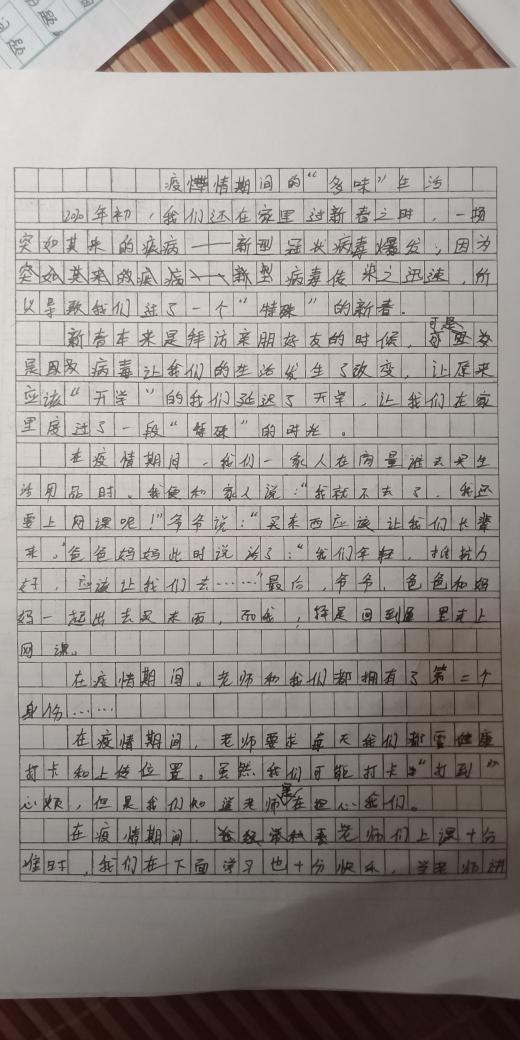 疫情期间的“多味”生活
2020年初，我们还在家里过新春之时，一场
突如其来的疾病——新型冠状病毒爆发，因为
突如其来的疾病——新型病毒传染之迅速，所
以导致我们过了一个“特殊”的新春。
新春本来是拜访亲朋好友的时候，可是
病毒让我们的生活发生了改变，让原来
应该“开学”的我们延迟了开学，让我们在家
里度过了一段“特殊”的时光。
在疫情期间，我们一家人在商量谁去买生
活用品时。我便和家人说：“我就不去了，我还
要上网课呢！”爷爷说：“买东西应该让我们长辈
来。”爸爸妈妈此时说话了：“我们年轻，抵抗力
好，应该让我们去……”最后，爷爷、爸爸和妈
妈一起出去买东西，而我，择是回到屋里来上
网课。
在疫情期间。老师和我们都拥有了第二个
身份……
在疫情期间，老师要求每天我们都要健康
打卡和上传位置。虽然我们可能打卡“打到”
心烦，但是我们知道老师是在担心我们。
在疫情期间，老师们上课十分
准时，我们在下面学习也十分快乐，当老师讲